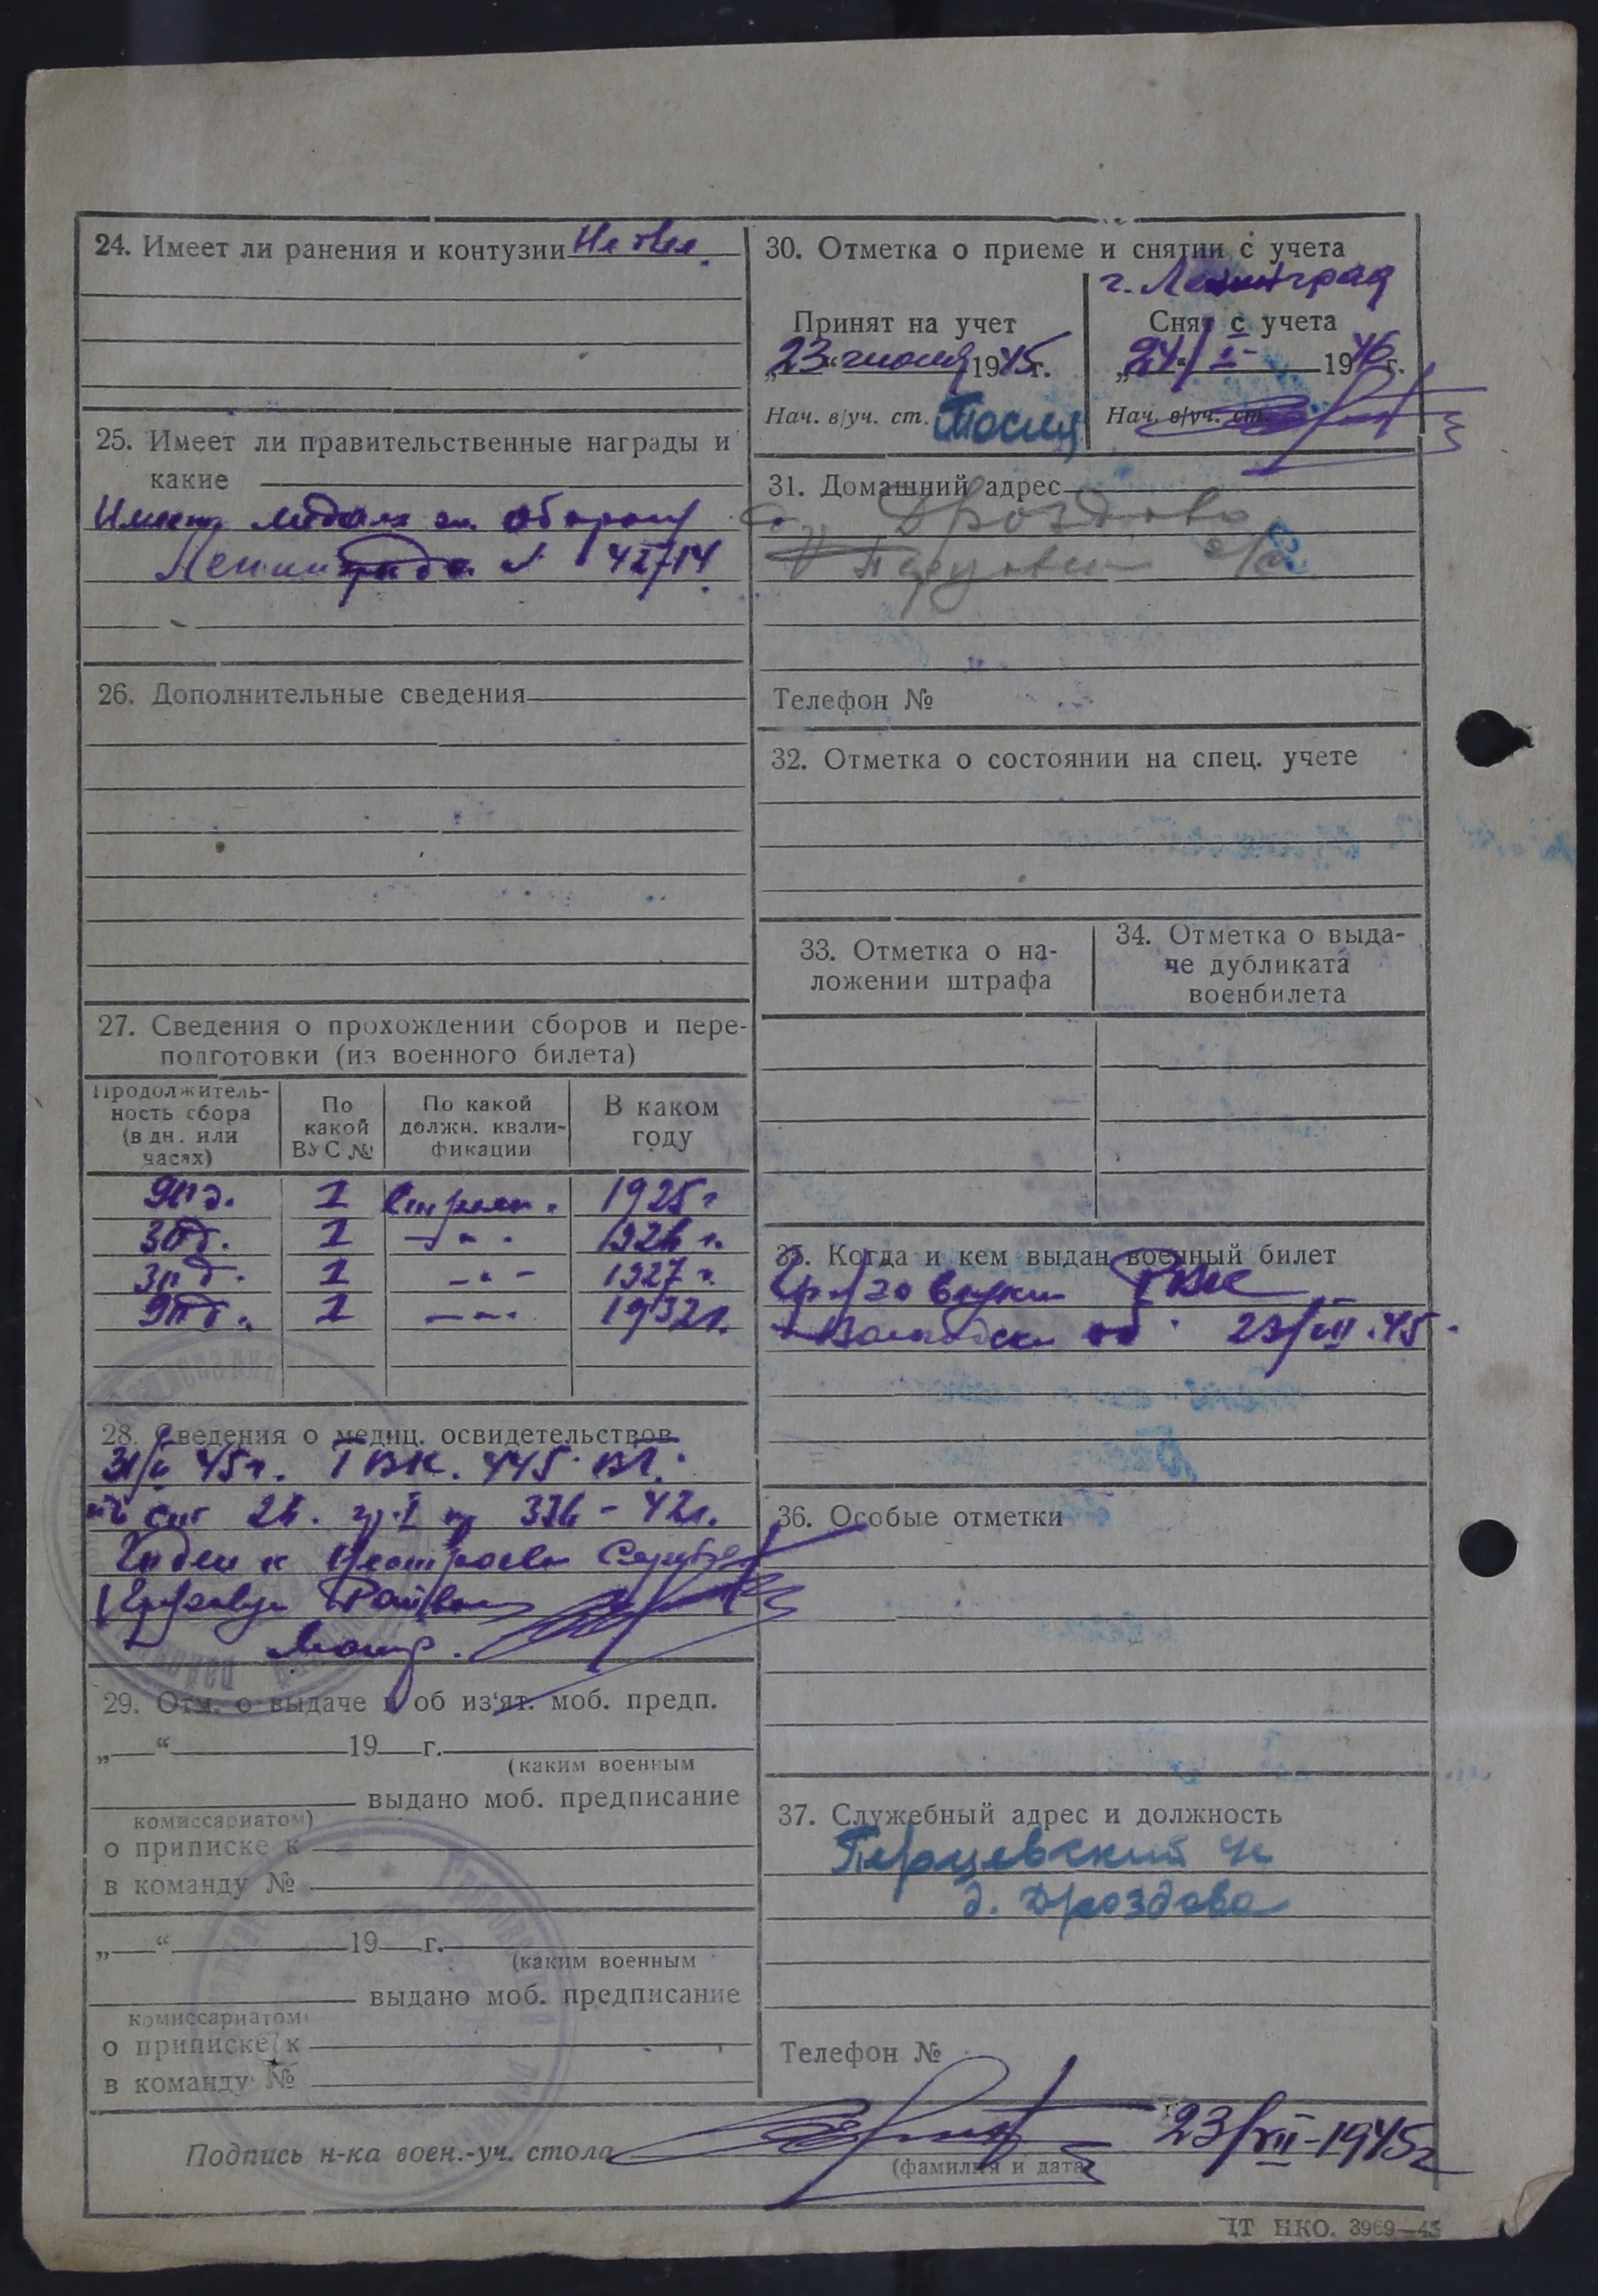 24. Имеет ли ранения и контузии
25. Имеет ли правительственные награды и
какие
Имеет медаль за оборону
Ленинграда № 42714
26. Дополнительные сведения
27. Сведения о прохождении сборов и пере-
подготовки (из военного билета)
Продолжитель-
ность сбора
(в дн. или
часях)
По
какой
ВУС №
По какой
должн. квали-
фикации
В каком
году
90 д. 1 Стрелк. 1925 г
30 д. 1 -"- 1926 г.
30 д. 1 -"- 1927 г.
90 д. 1 -"- 1932 г.
28. Сведения о медиц. освидетельствов.
45 г. ГВК. 445
ст 26. гр. I пр 336 - 42 г.
Годен к
29. Отм. о выдаче и об из'ят. моб. предп.
„—“ 19—г.
(каким военным
выдано моб. предписание
комиссариатом)
о приписке к
в команду №
„—“ 19—г.
(каким военным
выдано моб. предписание
комиссариатом)
о приписке к
в команду №
30. Отметка о приеме и снятии с учета
г. Ленинград
Принят на учет
„23“ июля 1945 г.
Нач. в/уч. ст.
Снят с учета
„24“/I- 1946 г.
Нач. в/уч. ст.
31. Домашний адрес
Дроздово
с/с
Телефон №
32. Отметка о состоянии на спец. учете
33. Отметка о на-
ложении штрафа
34. Отметка о выда-
че дубликата
военбилета
35. Когда и кем выдан военный билет
Грязовецким РВК
Вологодской об. 23/VII.45.
36. Особые отметки
37. Служебный адрес и должность
Перцевский
д. Дроздово
Телефон №
Подпись н-ка воен.-уч. стола
23/VII-1945 г
(фамилия и дата)
ЦТ НКО. 3969—45